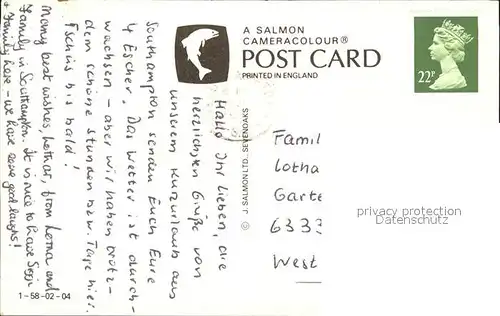 A SALMON
CAMERACOLOUR®
POST CARD
PRINTED IN ENGLAND
22P
J. SALMON LTD. SEVENOAKS ©
Hallo Ihr Lieben, die
herzlichsten Grüße von
unserem Kurzurlaub aus
Southampton senden Euch Eure
4 Escher. Das Wetter ist durch-
wachsen - aber wir haben trotz-
dem schöne Stunden bzw. Tage hier.
Tschüs bis bald!
Many best wishes, Lothar, from Lorna and
Family in Southampton. It is nice to have
& Family here - we have some good laughs!
1-58-02-04
Famil
Lotha
Garte
6333
West
privacy protection
www.ansichtskarten-center.de